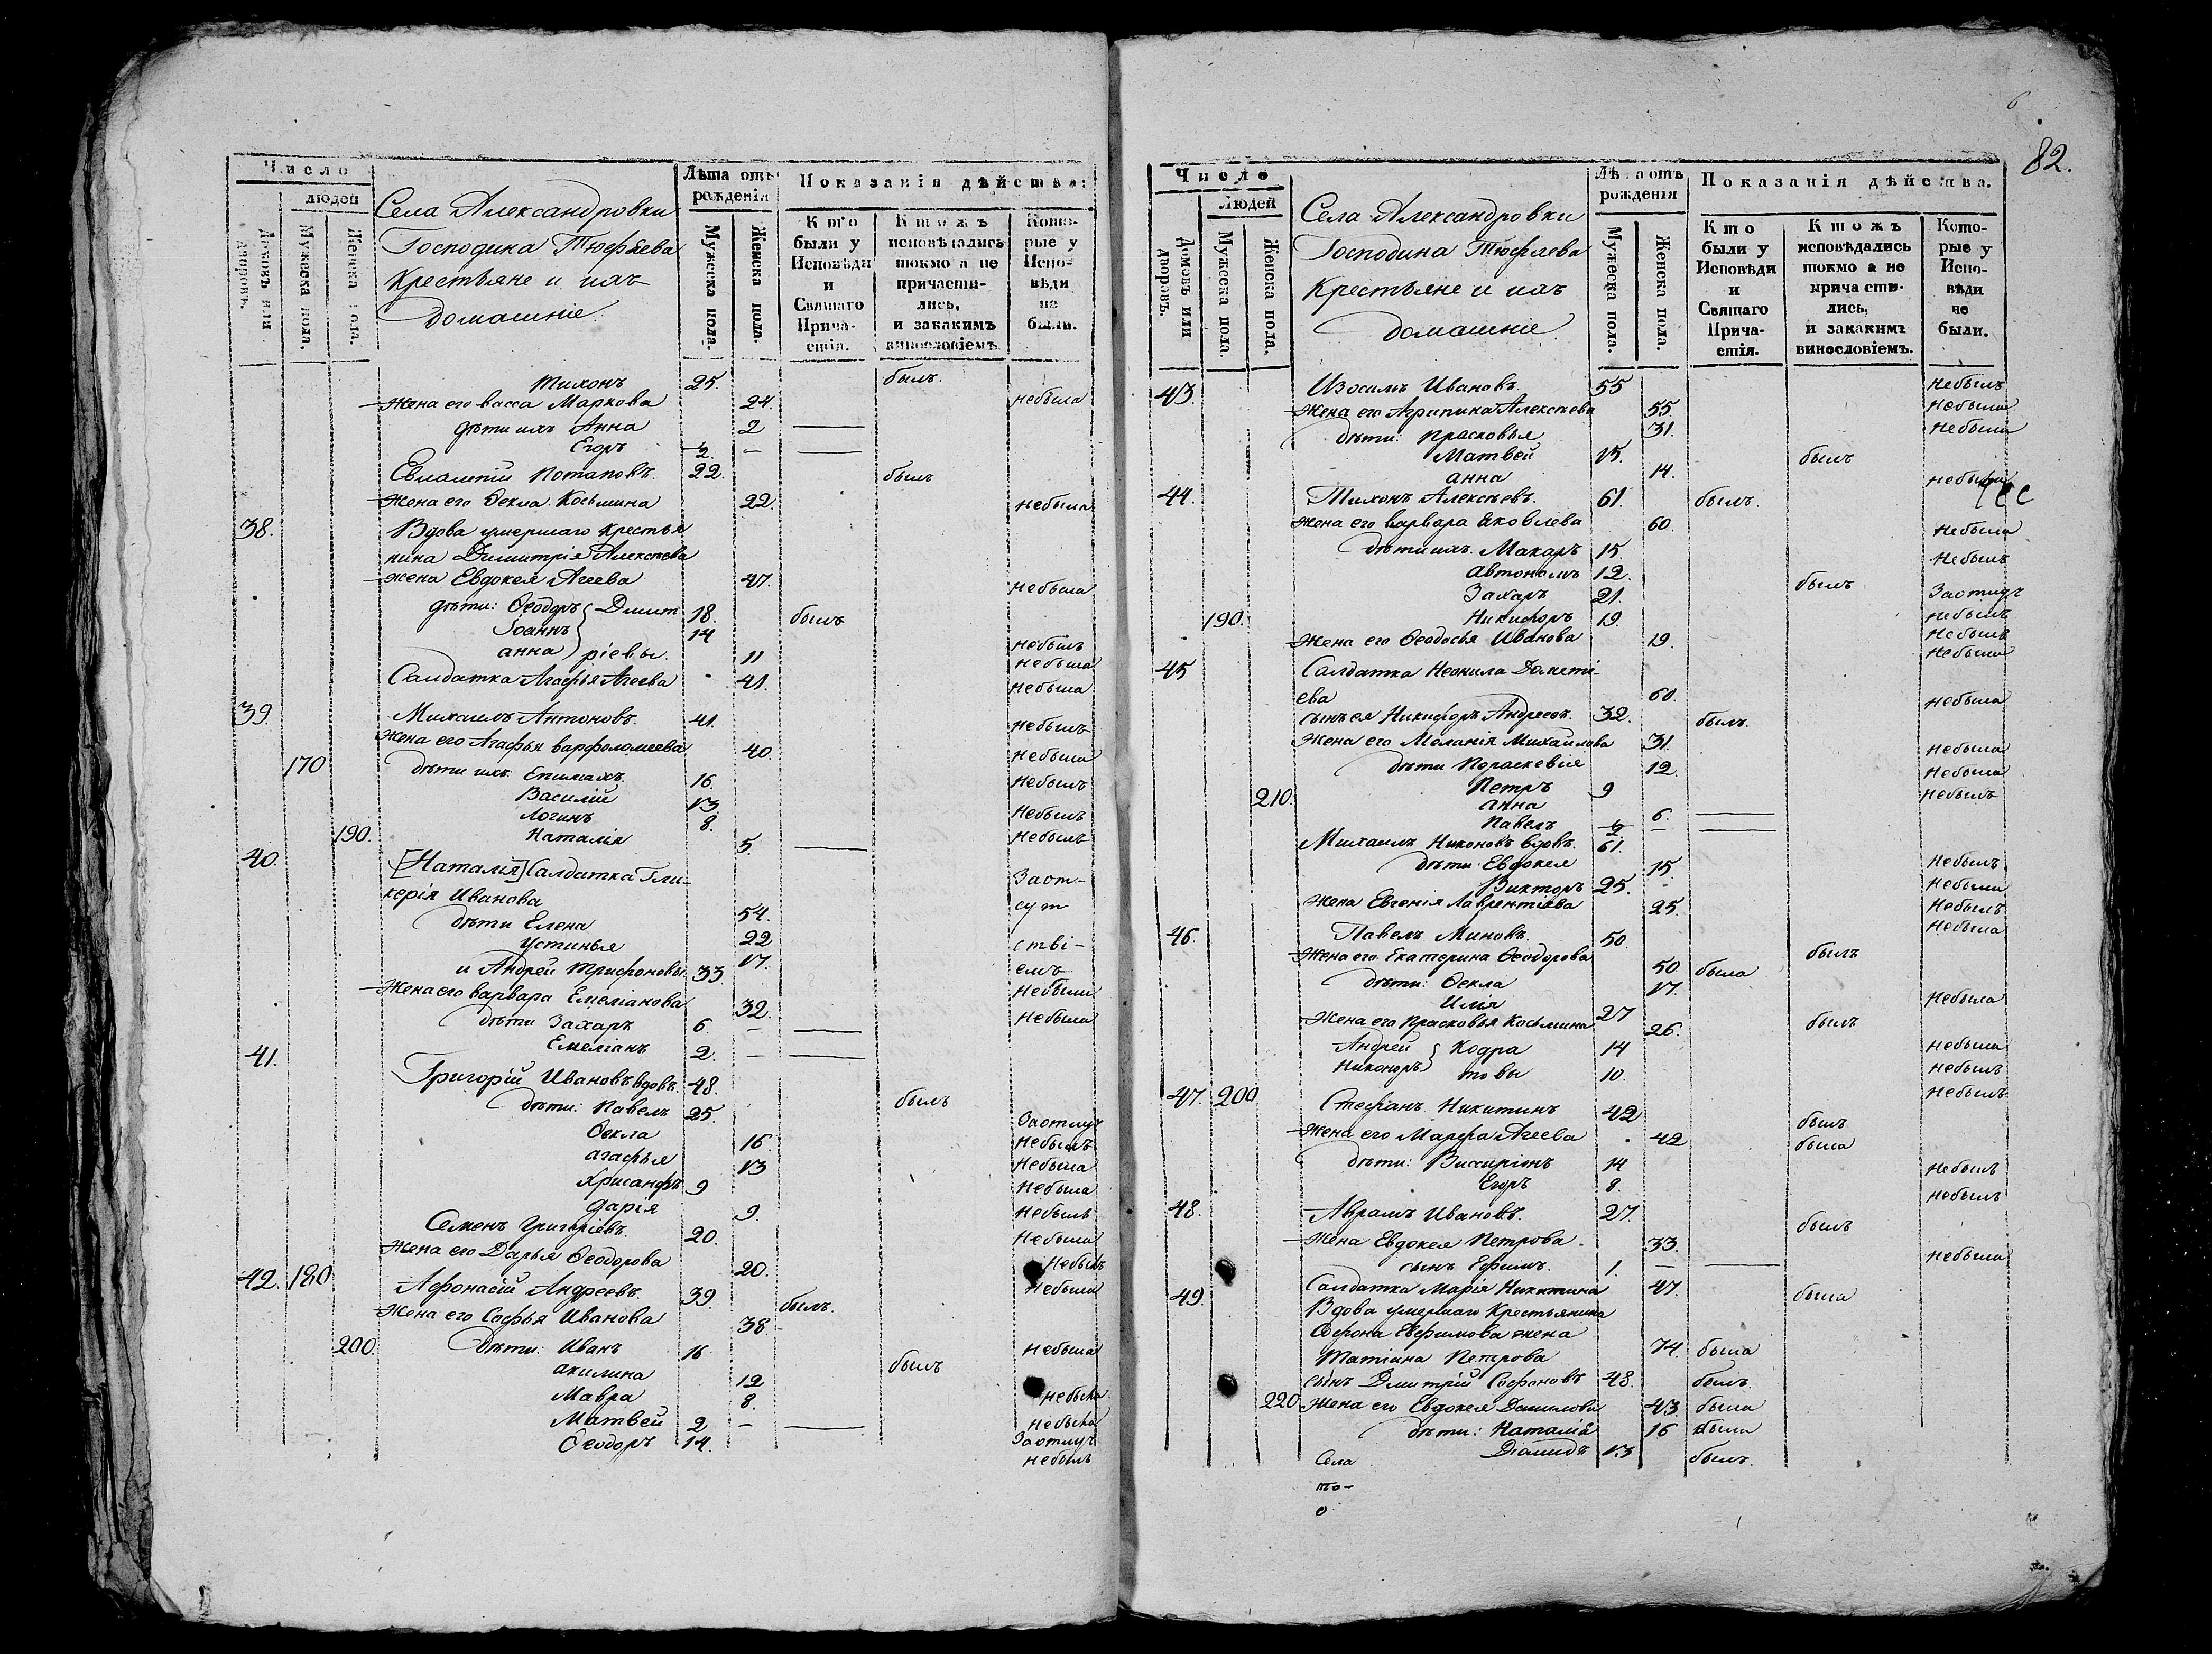 Число
людей
Домовъ или дворовъ.
Мужеска пола.
Женска пола.
Села Александровки
Господина Тюфяева
Крестьяне и ихъ
домашніе.
Лѣта отъ рожденія
Мужеска пола.
Женска пола.
Показанія дѣйства.
Кто были у Исповѣди и Святаго Причастія.
Ктожъ исповѣдались токмо а не причастились, и закакимъ винословіемъ.
Которые у Исповѣди не были.
Тихонъ 25. былъ.
Жена его васса Маркова 24. небыла
дѣти ихъ Анна 2 —
Егоръ 2. — —
Евлампій Потаповъ. 22. былъ
Жена его Ѳекла Косьмина 22. небыла
38. Вдова умершаго крестья
нина Димитрія Алексѣева
жена Евдокея Агеева 47. небыла
дѣти: Ѳеодоръ Дмит 18. былъ
Іоаннъ 14 небылъ
анна ріевы. 11 небыла
Салдатка Агафья Агеева 41. небыла
39. Михаилъ Антоновъ. 41. небылъ
Жена его Агафья варфоломеева 40. небыла
170 дѣти ихъ Епимахъ. 16. небылъ
Василій 13. небылъ
Логинъ 8. небылъ
190. Наталія 5. —
40. [Наталія] Салдатка Гли- Заот-
керія Иванова 54. сут
дѣти Елена 22 стві-
Устинья 17. емъ
и Андрей Трифоновы 33. небыли
Жена его варвара Емеліанова 32. небыла
дѣти Захаръ 6. — —
Емеліанъ 2. — —
41. Григорій Ивановъ вдовъ. 48. былъ
дѣти: Павелъ 25. Заотлуч
Ѳекла 16. небылъ
агафья 13 небыла
Хрисанфъ 9 небыла
дарія 9. небылъ
Семенъ Григоріевъ. 20. небыла
Жена его Дарья Ѳеодорова 20. небылъ
42. 180 Афонасій Андреевъ. 39. былъ. небыла
Жена его Софья Иванова 38.
200. дѣти: Иванъ 16 былъ небыла
акилина 12
Мавра 8. небыла
Матвей 2 — — небыла
Ѳеодоръ 14. Заотлуч
небылъ
82.
Число
Людей
Домовъ или дворовъ.
Мужеска пола.
Женска пола.
Села Александровки
Господина Тюфяева
Крестьяне и ихъ
домашніе.
Лѣта отъ рожденія
Мужеска пола.
Женска пола.
Показанія дѣйства.
Кто были у Исповѣди и Святаго Причастія.
Ктожъ исповѣдались токмо а не причастились, и закакимъ винословіемъ.
Которые у Исповѣди не были.
43. Изосимъ Ивановъ. 55 небылъ
Жена его Агрипина Алексѣева 55. небыла
дѣти: Прасковья 31. небыла
Матвей 15. былъ
анна 14. небыла
44. Тихонъ Алексѣевъ. 61. былъ.
Жена его варвара Яковлева 60. небыла
дѣти ихъ. Макаръ 15. небылъ
автономъ 12. былъ
Захаръ 21. Заотлуч
190. Никифоръ 19. небылъ
небылъ
Жена его Ѳеодосья Иванова 19. небыла
45 Салдатка Неонила Домети-
ева 60. небыла
сынъ ея Никифоръ Андреевъ. 32. былъ.
Жена его Меланія Михайлова 31. небыла
дѣти Пораскевія 12. небыла
210. Петръ 9 небылъ
анна 6. —
Павелъ 2 — —
Михаилъ Никоновъ вдовъ. 61. небылъ
дѣти Евдокея 15. небыла
Викторъ 25. небылъ
Жена Евгенія Лаврентіева 25. небыла
46. Павелъ Миновъ. 50. былъ
Жена его Екатерина Ѳеодорова 50 была
дѣти: Ѳекла 17. небыла
Илія 27 былъ
Жена его Прасковья Косьмина 26. небыла
Андрей Кодра 14 небылъ
Никоноръ товы 10. небылъ
47. 200 Стефанъ Никитинъ 42 былъ
Жена его Марфа Агеева 42 была
дѣти: Виссаріонъ 14 небылъ
Егоръ 8. небылъ
48. Аврамъ Ивановъ. 27. былъ
Жена Евдокея Петрова 33. небыла
сынъ Ефимъ. 1. — —
49. Салдатка Марія Никитина 47. была
Вдова умершаго Крестьянина
Софрона Ефимова жена
Татіана Петрова 74. была
сынъ Дмитрій Софоновъ 48. былъ.
220 Жена его Евдокея Данилова 43 была
дѣти: Наталія 16 была
Діамидъ 13 былъ.
Села
то-
о